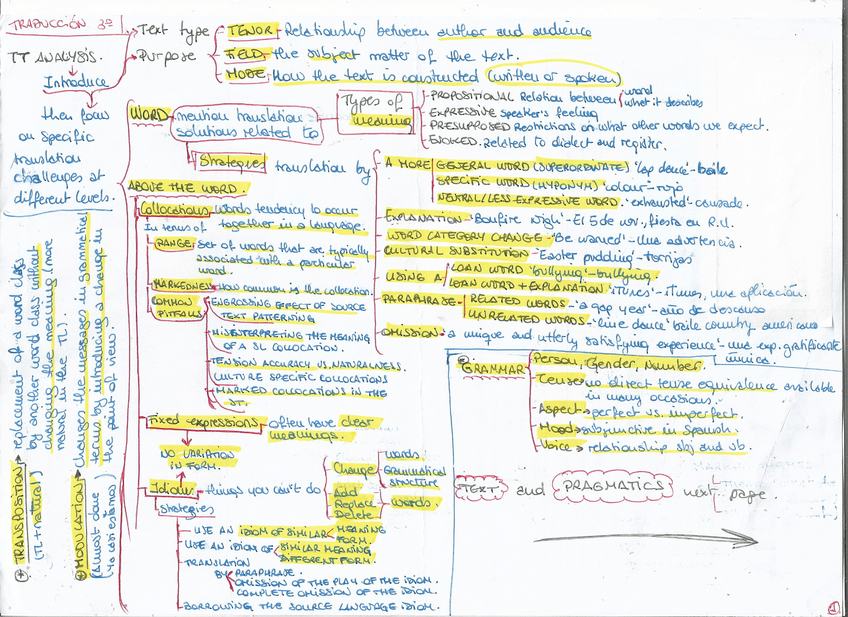 TRADUCCIÓN 3º
TT ANALYSIS.
Introduce
then focus
on specific
translation
challenges at
different levels.
Text type
Purpose
TENOR - Relationship between author and audience
FIELD - the subject matter of the text.
MODE - How the text is constructed (written or spoken)
WORD - mention translation
solutions related to
Types of
meaning
PROPOSITIONAL Relation between word
what it describes
EXPRESSIVE speaker's feeling
PRESUPPOSED Restrictions on what other words we expect.
EVOKED. Related to dialect and register.
Strategies translation by
A MORE GENERAL WORD (SUPERORDINATE) 'lap dance' - baile
SPECIFIC WORD (HYPONYM) 'colour' - rojo
NEUTRAL/LESS EXPRESSIVE WORD. 'exhausted' - cansado.
EXPLANATION - 'Bonfire nigh' - El 5 de nov., fiesta en R.U.
WORD CATEGORY CHANGE - 'Be warned' - una advertencia.
CULTURAL SUBSTITUTION - 'Easter pudding' - torrijas
USING A LOAN WORD 'bullying' - bullying.
LOAN WORD + EXPLANATION 'iTunes' - iTunes, una aplicación.
PARAPHRASE - RELATED WORDS - 'a gap year' - año de descanso
UNRELATED WORDS - 'line dance' baile country americano
OMISSION - 'a unique and utterly satisfying experience' - una exp. gratificante
única.
ABOVE THE WORD.
Collocations - words tendency to occur
together in a language.
In terms of
RANGE: set of words that are typically
associated with a particular
word.
MARKEDNESS - How common is the collocation.
COMMON
PITFALLS
ENGROSSING EFFECT OF SOURCE
TEXT PATTERNING
MISINTERPRETING THE MEANING
OF A SL COLOCATION.
TENSION ACCURACY VS. NATURALNESS.
CULTURE SPECIFIC COLLOCATIONS
MARKED COLLOCATIONS IN THE
ST.
Fixed expressions - often have clear
meanings.
NO VARIATION
IN FORM.
Idioms - things you can't do
Change words
Grammatical
structure
Add
Replace
Delete
words.
Strategies
USE AN IDIOM OF SIMILAR MEANING
FORM.
USE AN IDIOM OF SIMILAR MEANING
DIFFERENT FORM.
TRANSLATION
BY PARAPHRASE.
OMISSION OF THE PLAY OF THE IDIOM.
COMPLETE OMISSION OF THE IDIOM.
BORROWING THE SOURCE LANGUAGE IDIOM.
GRAMMAR
Person, Gender, Number.
Tense - no direct tense equivalence available
in many occasions.
Aspect - perfect vs. imperfect.
Mood - subjunctive in Spanish.
Voice - relationship sbj and vb.
TEXT and PRAGMATICS next page.
* TRANSPOSITION → replacement of a word class
by another word class without
changing the meaning (more
natural in the TL).
(TL + natural)
* MODULATION → changes the messages in grammatical
terms by introducing a change in
the point of view.
(Almost done
Ya casi estamos)
1